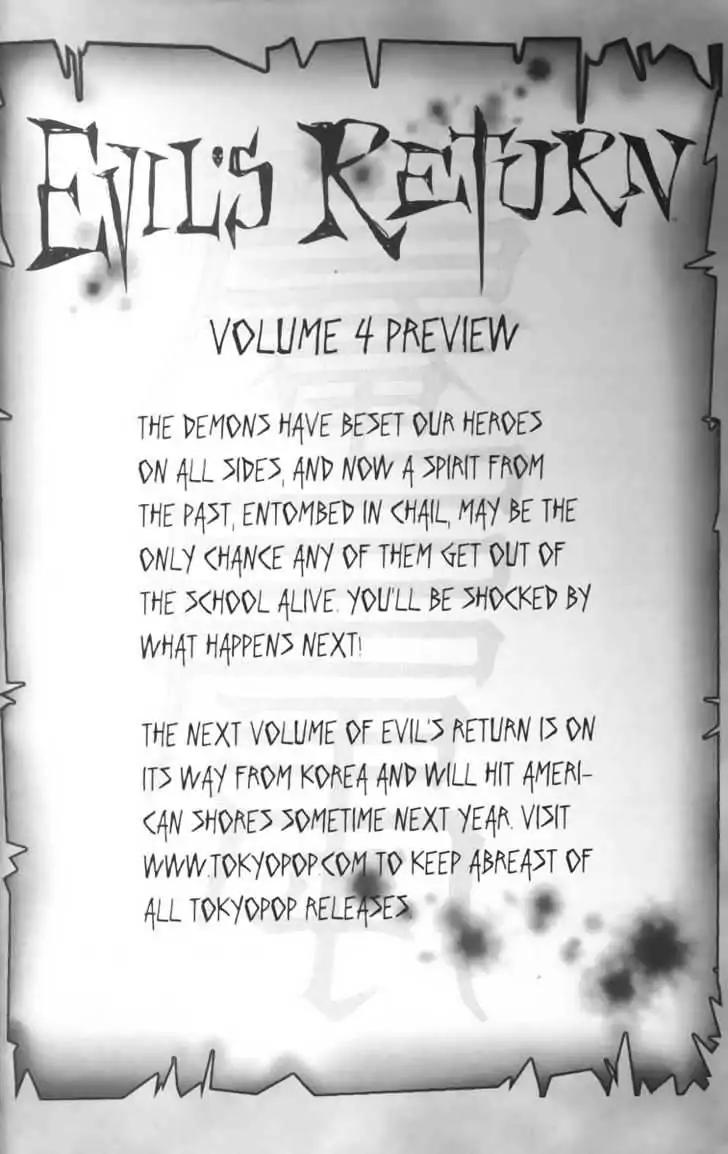 EVIL'S RETURN
VOLUME 4 PREVIEW
THE DEMONS HAVE BESET OUR HEROES
ON ALL SIDES, AND NOW A SPIRIT FROM
THE PAST, ENTOMBED IN CHAIL, MAY BE THE
ONLY CHANCE ANY OF THEM GET OUT OF
THE SCHOOL ALIVE. YOU'LL BE SHOCKED BY
WHAT HAPPENS NEXT!
THE NEXT VOLUME OF EVIL'S RETURN IS ON
ITS WAY FROM KOREA AND WILL HIT AMERI-
CAN SHORES SOMETIME NEXT YEAR. VISIT
WWW.TOKYOPOP.COM TO KEEP ABREAST OF
ALL TOKYOPOP RELEASES.